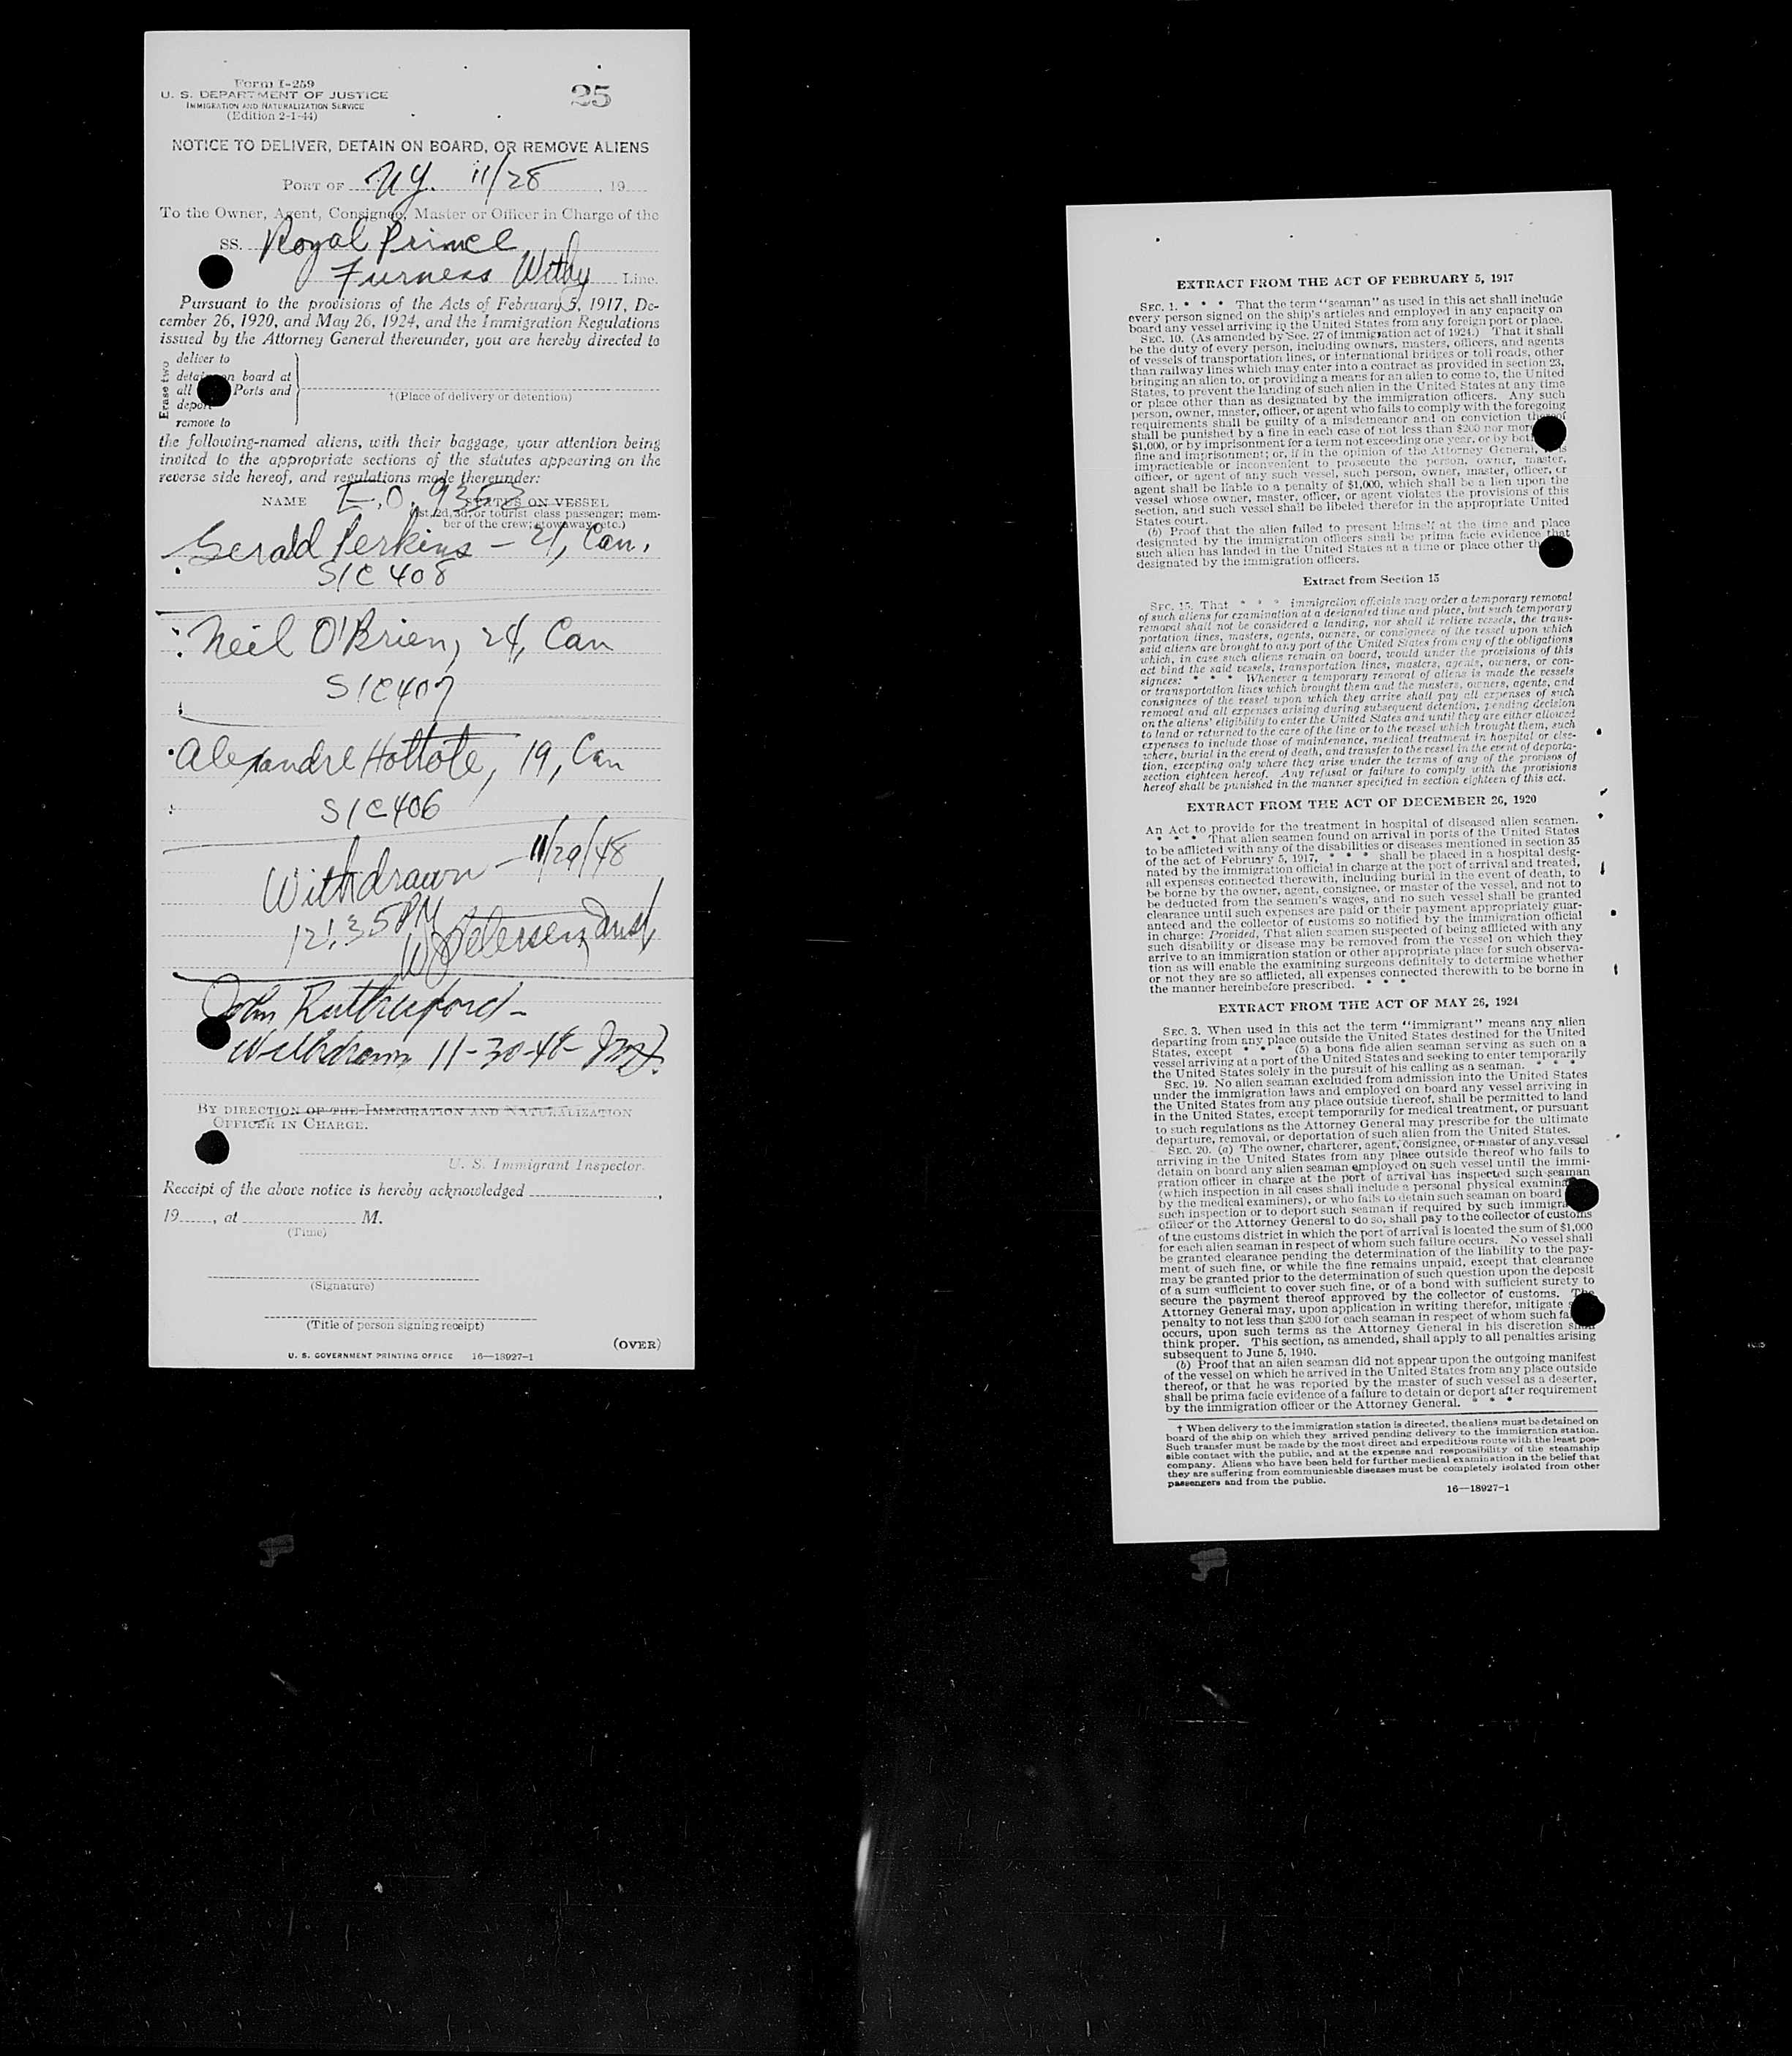 Form I-259
U. S. DEPARTMENT OF JUSTICE
IMMIGRATION AND NATURALIZATION SERVICE
(Edition 2-1-44)
25
NOTICE TO DELIVER, DETAIN ON BOARD, OR REMOVE ALIENS
PORT OF N.Y. 11/28, 19
To the Owner, Agent, Consignee, Master or Officer in Charge of the
SS. Royal Prince
Furness Withy Line.
Pursuant to the provisions of the Acts of February 5, 1917, De-
cember 26, 1920, and May 26, 1924, and the Immigration Regulations
issued by the Attorney General thereunder, you are hereby directed to
Erase two
deliver to
detain on board at
all Ports and
deport
remove to
†(Place of delivery or detention)
the following-named aliens, with their baggage, your attention being
invited to the appropriate sections of the statutes appearing on the
reverse side hereof, and regulations made thereunder:
E.O. 9352
NAME STATUS ON VESSEL
(1st, 2d, 3d, or tourist class passenger; mem-
ber of the crew; stowaway, etc.)
Gerald Perkins – 21, Can.
S/C 408
Neil O'Brien, 24, Can
S/C 407
Alexandre Hottote, 19, Can
S/C 406
Withdrawn – 11/29/48
12:35 PM
W Petersen
John Rutherford –
Withdrawn 11-30-48-
BY DIRECTION OF THE IMMIGRATION AND NATURALIZATION
OFFICER IN CHARGE.
U. S. Immigrant Inspector.
Receipt of the above notice is hereby acknowledged ,
19 , at M.
(Time)
(Signature)
(Title of person signing receipt)
(OVER)
U. S. GOVERNMENT PRINTING OFFICE 16—18927-1
EXTRACT FROM THE ACT OF FEBRUARY 5, 1917
SEC. 1. * * * That the term "seaman" as used in this act shall include
every person signed on the ship's articles and employed in any capacity on
board any vessel arriving in the United States from any foreign port or place.
SEC. 10. (As amended by Sec. 27 of immigration act of 1924.) That it shall
be the duty of every person, including owners, masters, officers, and agents
of vessels of transportation lines, or international bridges or toll roads, other
than railway lines which may enter into a contract as provided in section 23,
bringing an alien to, or providing a means for an alien to come to, the United
States, to prevent the landing of such alien in the United States at any time
or place other than as designated by the immigration officers. Any such
person, owner, master, officer, or agent who fails to comply with the foregoing
requirements shall be guilty of a misdemeanor and on conviction thereof
shall be punished by a fine in each case of not less than $200 nor more
$1,000, or by imprisonment for a term not exceeding one year, or by both
fine and imprisonment; or, if in the opinion of the Attorney General, it is
impracticable or inconvenient to prosecute the person, owner, master,
officer, or agent of any such vessel, such person, owner, master, officer, or
agent shall be liable to a penalty of $1,000, which shall be a lien upon the
vessel whose owner, master, officer, or agent violates the provisions of this
section, and such vessel shall be libeled therefor in the appropriate United
States court.
(b) Proof that the alien failed to present himself at the time and place
designated by the immigration officers shall be prima facie evidence that
such alien has landed in the United States at a time or place other th
designated by the immigration officers.
Extract from Section 15
SEC. 15. That * * * immigration officials may order a temporary removal
of such aliens for examination at a designated time and place, but such temporary
removal shall not be considered a landing, nor shall it relieve vessels, the trans-
portation lines, masters, agents, owners, or consignees of the vessel upon which
said aliens are brought to any port of the United States from any of the obligations
which, in case such aliens remain on board, would under the provisions of this
act bind the said vessels, transportation lines, masters, agents, owners, or con-
signees: * * * Whenever a temporary removal of aliens is made the vessels
or transportation lines which brought them and the masters, owners, agents, and
consignees of the vessel upon which they arrive shall pay all expenses of such
removal and all expenses arising during subsequent detention, pending decision
on the aliens' eligibility to enter the United States and until they are either allowed
to land or returned to the care of the line or to the vessel which brought them, such
expenses to include those of maintenance, medical treatment in hospital or else-
where, burial in the event of death, and transfer to the vessel in the event of deporta-
tion, excepting only where they arise under the terms of any of the provisos of
section eighteen hereof. Any refusal or failure to comply with the provisions
hereof shall be punished in the manner specified in section eighteen of this act.
EXTRACT FROM THE ACT OF DECEMBER 26, 1920
An Act to provide for the treatment in hospital of diseased alien seamen.
* * * That alien seamen found on arrival in ports of the United States
to be afflicted with any of the disabilities or diseases mentioned in section 35
of the act of February 5, 1917, * * * shall be placed in a hospital desig-
nated by the immigration official in charge at the port of arrival and treated,
all expenses connected therewith, including burial in the event of death, to
be borne by the owner, agent, consignee, or master of the vessel, and not to
be deducted from the seamen's wages, and no such vessel shall be granted
clearance until such expenses are paid or their payment appropriately guar-
anteed and the collector of customs so notified by the immigration official
in charge: Provided, That alien seamen suspected of being afflicted with any
such disability or disease may be removed from the vessel on which they
arrive to an immigration station or other appropriate place for such observa-
tion as will enable the examining surgeons definitely to determine whether
or not they are so afflicted, all expenses connected therewith to be borne in
the manner hereinbefore prescribed. * * *
EXTRACT FROM THE ACT OF MAY 26, 1924
SEC. 3. When used in this act the term "immigrant" means any alien
departing from any place outside the United States destined for the United
States, except * * * (5) a bona fide alien seaman serving as such on a
vessel arriving at a port of the United States and seeking to enter temporarily
the United States solely in the pursuit of his calling as a seaman. * * *
SEC. 19. No alien seaman excluded from admission into the United States
under the immigration laws and employed on board any vessel arriving in
the United States from any place outside thereof, shall be permitted to land
in the United States, except temporarily for medical treatment, or pursuant
to such regulations as the Attorney General may prescribe for the ultimate
departure, removal, or deportation of such alien from the United States.
SEC. 20. (a) The owner, charterer, agent, consignee, or master of any vessel
arriving in the United States from any place outside thereof who fails to
detain on board any alien seaman employed on such vessel until the immi-
gration officer in charge at the port of arrival has inspected such seaman
(which inspection in all cases shall include a personal physical examina
by the medical examiners), or who fails to detain such seaman on board
such inspection or to deport such seaman if required by such immigra
officer or the Attorney General to do so, shall pay to the collector of customs
of the customs district in which the port of arrival is located the sum of $1,000
for each alien seaman in respect of whom such failure occurs. No vessel shall
be granted clearance pending the determination of the liability to the pay-
ment of such fine, or while the fine remains unpaid, except that clearance
may be granted prior to the determination of such question upon the deposit
of a sum sufficient to cover such fine, or of a bond with sufficient surety to
secure the payment thereof approved by the collector of customs. The
Attorney General may, upon application in writing therefor, mitigate
penalty to not less than $200 for each seaman in respect of whom such fa
occurs, upon such terms as the Attorney General in his discretion shall
think proper. This section, as amended, shall apply to all penalties arising
subsequent to June 5, 1940.
(b) Proof that an alien seaman did not appear upon the outgoing manifest
of the vessel on which he arrived in the United States from any place outside
thereof, or that he was reported by the master of such vessel as a deserter,
shall be prima facie evidence of a failure to detain or deport after requirement
by the immigration officer or the Attorney General. * * *
† When delivery to the immigration station is directed, the aliens must be detained on
board of the ship on which they arrived pending delivery to the immigration station.
Such transfer must be made by the most direct and expeditious route with the least pos-
sible contact with the public, and at the expense and responsibility of the steamship
company. Aliens who have been held for further medical examination in the belief that
they are suffering from communicable diseases must be completely isolated from other
passengers and from the public.
16—18927-1